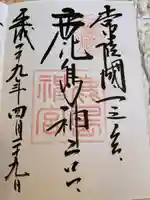 常陸國一之宮
鹿島神宮
平成二十九年四月二十九日
鹿島神宮